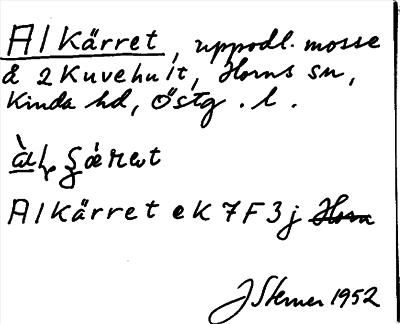 Alkärret, uppodl. mosse
å 2 Kuvehult, Horns sn,
Kinda hd, Östg. l.
Alkärret ek 7F3j
J Sterner 1952